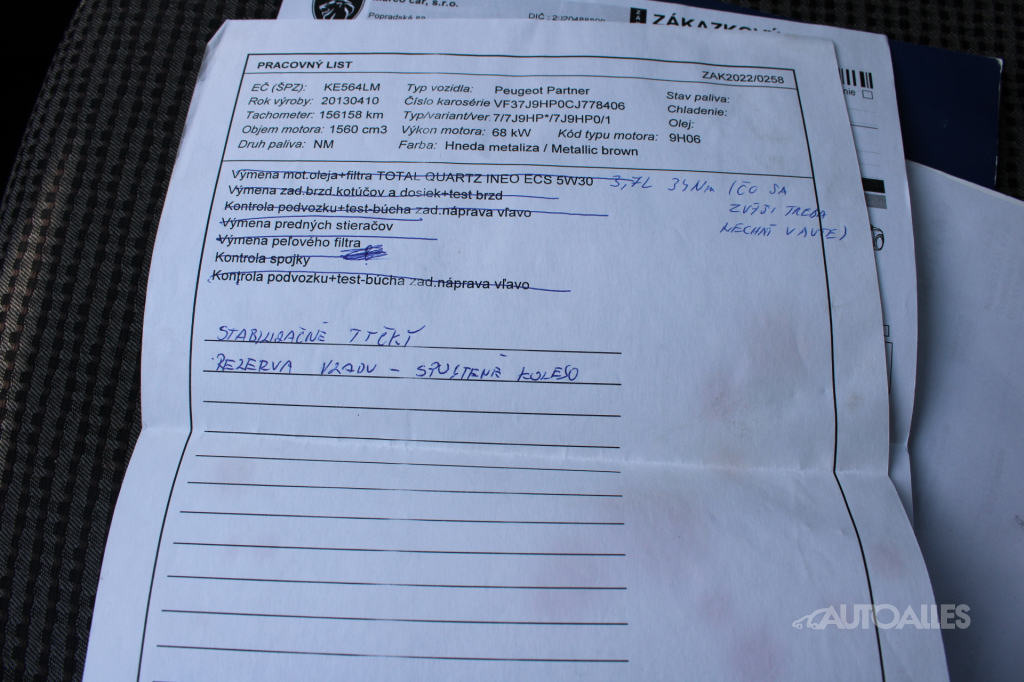 car, s.r.o.
Popradská
DIČ :
PRACOVNÝ LIST
ZAK2022/0258
EČ (ŠPZ): KE564LM Typ vozidla: Peugeot Partner Stav paliva:
Rok výroby: 20130410 Číslo karosérie VF37J9HP0CJ778406 Chladenie:
Tachometer: 156158 km Typ/variant/ver 7/7J9HP*/7J9HP0/1 Olej:
Objem motora: 1560 cm3 Výkon motora: 68 kW Kód typu motora: 9H06
Druh paliva: NM Farba: Hneda metaliza / Metallic brown
Výmena mot.oleja+filtra TOTAL QUARTZ INEO ECS 5W30 3,7L 34Nm (ČO SA
Výmena zad.brzd.kotúčov a dosiek+test brzd ZVÝŠI TREBA
Kontrola podvozku+test-búcha zad.náprava vľavo NECHAŤ V AUTE)
Výmena predných stieračov
Výmena peľového filtra
Kontrola spojky
Kontrola podvozku+test-búcha zad.náprava vľavo
STABILIZAČNÉ TYČKY
REZERVA VZADU - SPUSTENÉ KOLESO
AUTOALLES